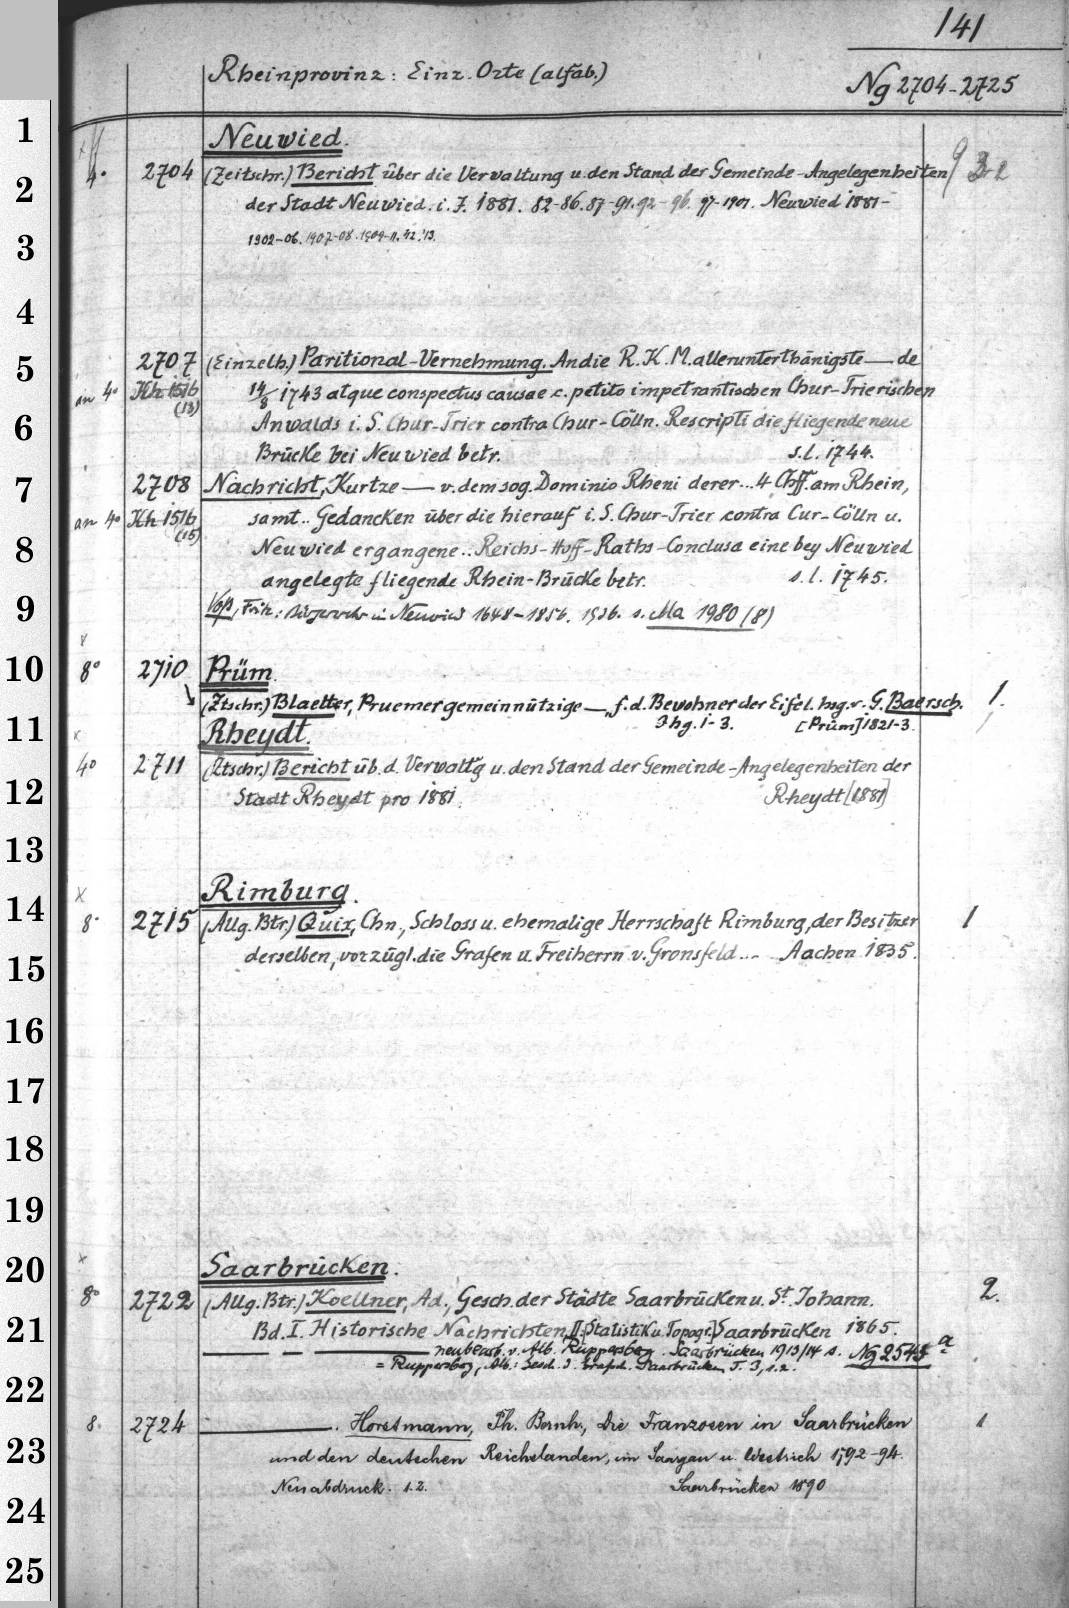 141
Rheinprovinz: Einz. Orte (alfab.)
Ng 2704-2725
1
Neuwied.
2
4° 2704 (Zeitschr.) Bericht über die Verwaltung u. den Stand der Gemeinde-Angelegenheiten
der Stadt Neuwied. i. J. 1881. 82-86. 87-91. 92-96. 97-1901. Neuwied 1881-
3
1902-06. 1907-08. 1909-11. 12. '13.
4
5
2707 (Einzelh.) Paritional-Vernehmung. An die R. K. M. allerunterthänigste — de
an 4° Kh 1516 (13) 14/8 1743 atque conspectus causae c. petito impetrantischen Chur-Trierischen
6
Anwalds i. S. Chur-Trier contra Chur-Cölln. Rescripti die fliegende neue
Brücke bei Neuwied betr. s.l. 1744.
7
2708 Nachricht, Kurtze — v. dem sog. Dominio Rheni derer... 4 Chff. am Rhein,
an 4° Kh 1516 (15) samt.. Gedancken über die hierauf i. S. Chur-Trier contra Cur-Cölln u.
8
Neuwied ergangene.. Reichs-Hoff-Raths-Conclusa eine bey Neuwied
angelegte fliegende Rhein-Brücke betr. s.l. 1745.
9
Voß, Fritz: in Neuwied 1648-1856. 1936. s. Ma 1980 (8)
10
8° 2710 Prüm.
(Ztschr.) Blaetter, Pruemer gemeinnützige —, f. d. Bewohner der Eifel. hsg. v. G. Baersch. 1.
Jhg. 1-3. [Prüm] 1821-3.
11
Rheydt.
4° 2711 (Ztschr.) Bericht üb. d. Verwaltg u. den Stand der Gemeinde-Angelegenheiten der
12
Stadt Rheydt pro 1881. Rheydt [1881]
13
14
Rimburg.
8° 2715 (Allg. Btr.) Quix, Chn., Schloss u. ehemalige Herrschaft Rimburg, der Besitzer 1
15
derselben, vorzügl. die Grafen u. Freiherrn v. Gronsfeld... Aachen 1835.
16
17
18
19
20
Saarbrücken.
8° 2722 (Allg. Btr.) Koellner, Ad., Gesch. der Städte Saarbrücken u. St. Johann. 2.
21
Bd. I. Historische Nachrichten, II: [Statistik u. Topogr.] Saarbrücken 1865.
— — — neubearb. v. Alb. Ruppersberg. Saarbrücken 1913/14 s. Ng 2543 a
= Ruppersberg, Alb.: Gesch. d. Grafsch. Saarbrücken T. 3, 1.2.
22
8° 2724 —. Horstmann, Ph. Bernh., Die Franzosen in Saarbrücken 1
23
und den deutschen Reichslanden, im Saargau u. Westrich 1792-94.
Neuabdruck. 1.2. Saarbrücken 1890
24
25